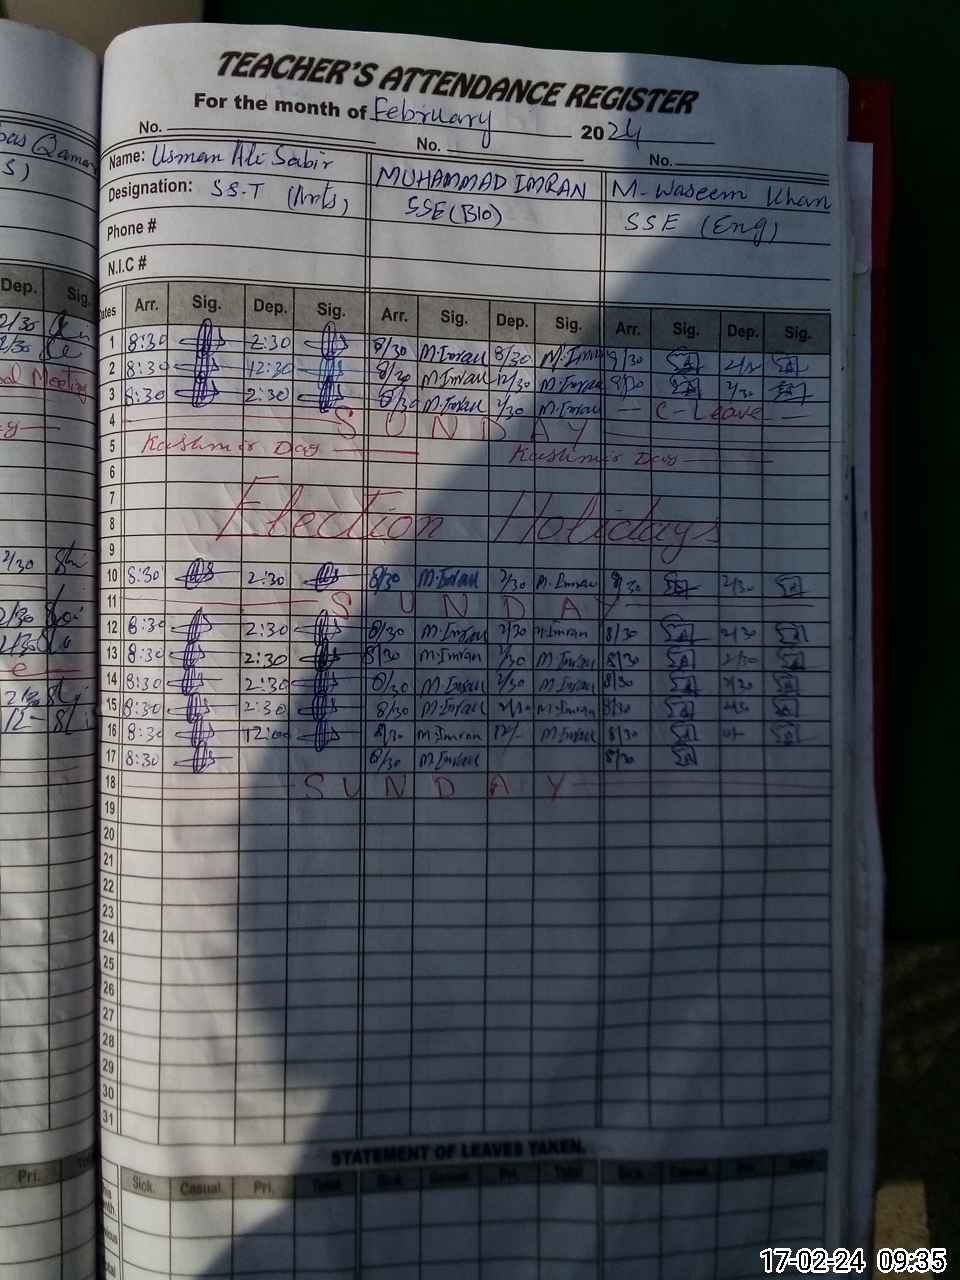 TEACHER'S ATTENDANCE REGISTER
For the month of Febriuary 2024
No. No. No.
Name: Usman Ali Sabir MUHAMMAD IMRAN M. Waseem Khan
Designation: SS.T (Arts) SSE(BIO) SSE (Eng)
Phone #
N.I.C #
Dep. Sig. Dates Arr. Sig. Dep. Sig. Arr. Sig. Dep. Sig. Arr. Sig. Dep. Sig.
1 8:30 2:30 8/30 M.Imran 8/30 M.Imran 8/30
2 8:30 12:30 8/30 M.Imran 12/30 M.Imran 8/30 2/30
3 8:30 2:30 8/30 M.Imran 2/30 M.Imran C-Leave
4 SUNDAY
5 Kashmir Day Kashmir Day
6
7 Election Holidays
8
9
10 8:30 2:30 8/30 M.Imran 2/30 M.Imran 8/30 2/30
11 SUNDAY
12 8:30 2:30 8/30 M.Imran 2/30 M.Imran 8/30 2/30
13 8:30 2:30 8/30 M.Imran 2/30 M.Imran 8/30 2/30
14 8:30 2:30 8/30 M.Imran 2/30 M.Imran 8/30 2/30
15 8:30 2:30 8/30 M.Imran 2/30 M.Imran 8/30 2/30
16 8:30 12:00 8/30 M.Imran 12/- M.Imran 8/30
17 8:30 8/30 M.Imran 8/30
18 SUNDAY
19
20
21
22
23
24
25
26
27
28
29
30
31
STATEMENT OF LEAVES TAKEN.
Pri. Sick. Casual. Pri. Total. Sick. Casual. Pri. Total Sick. Casual. Pri. Total.
17-02-24 09:35